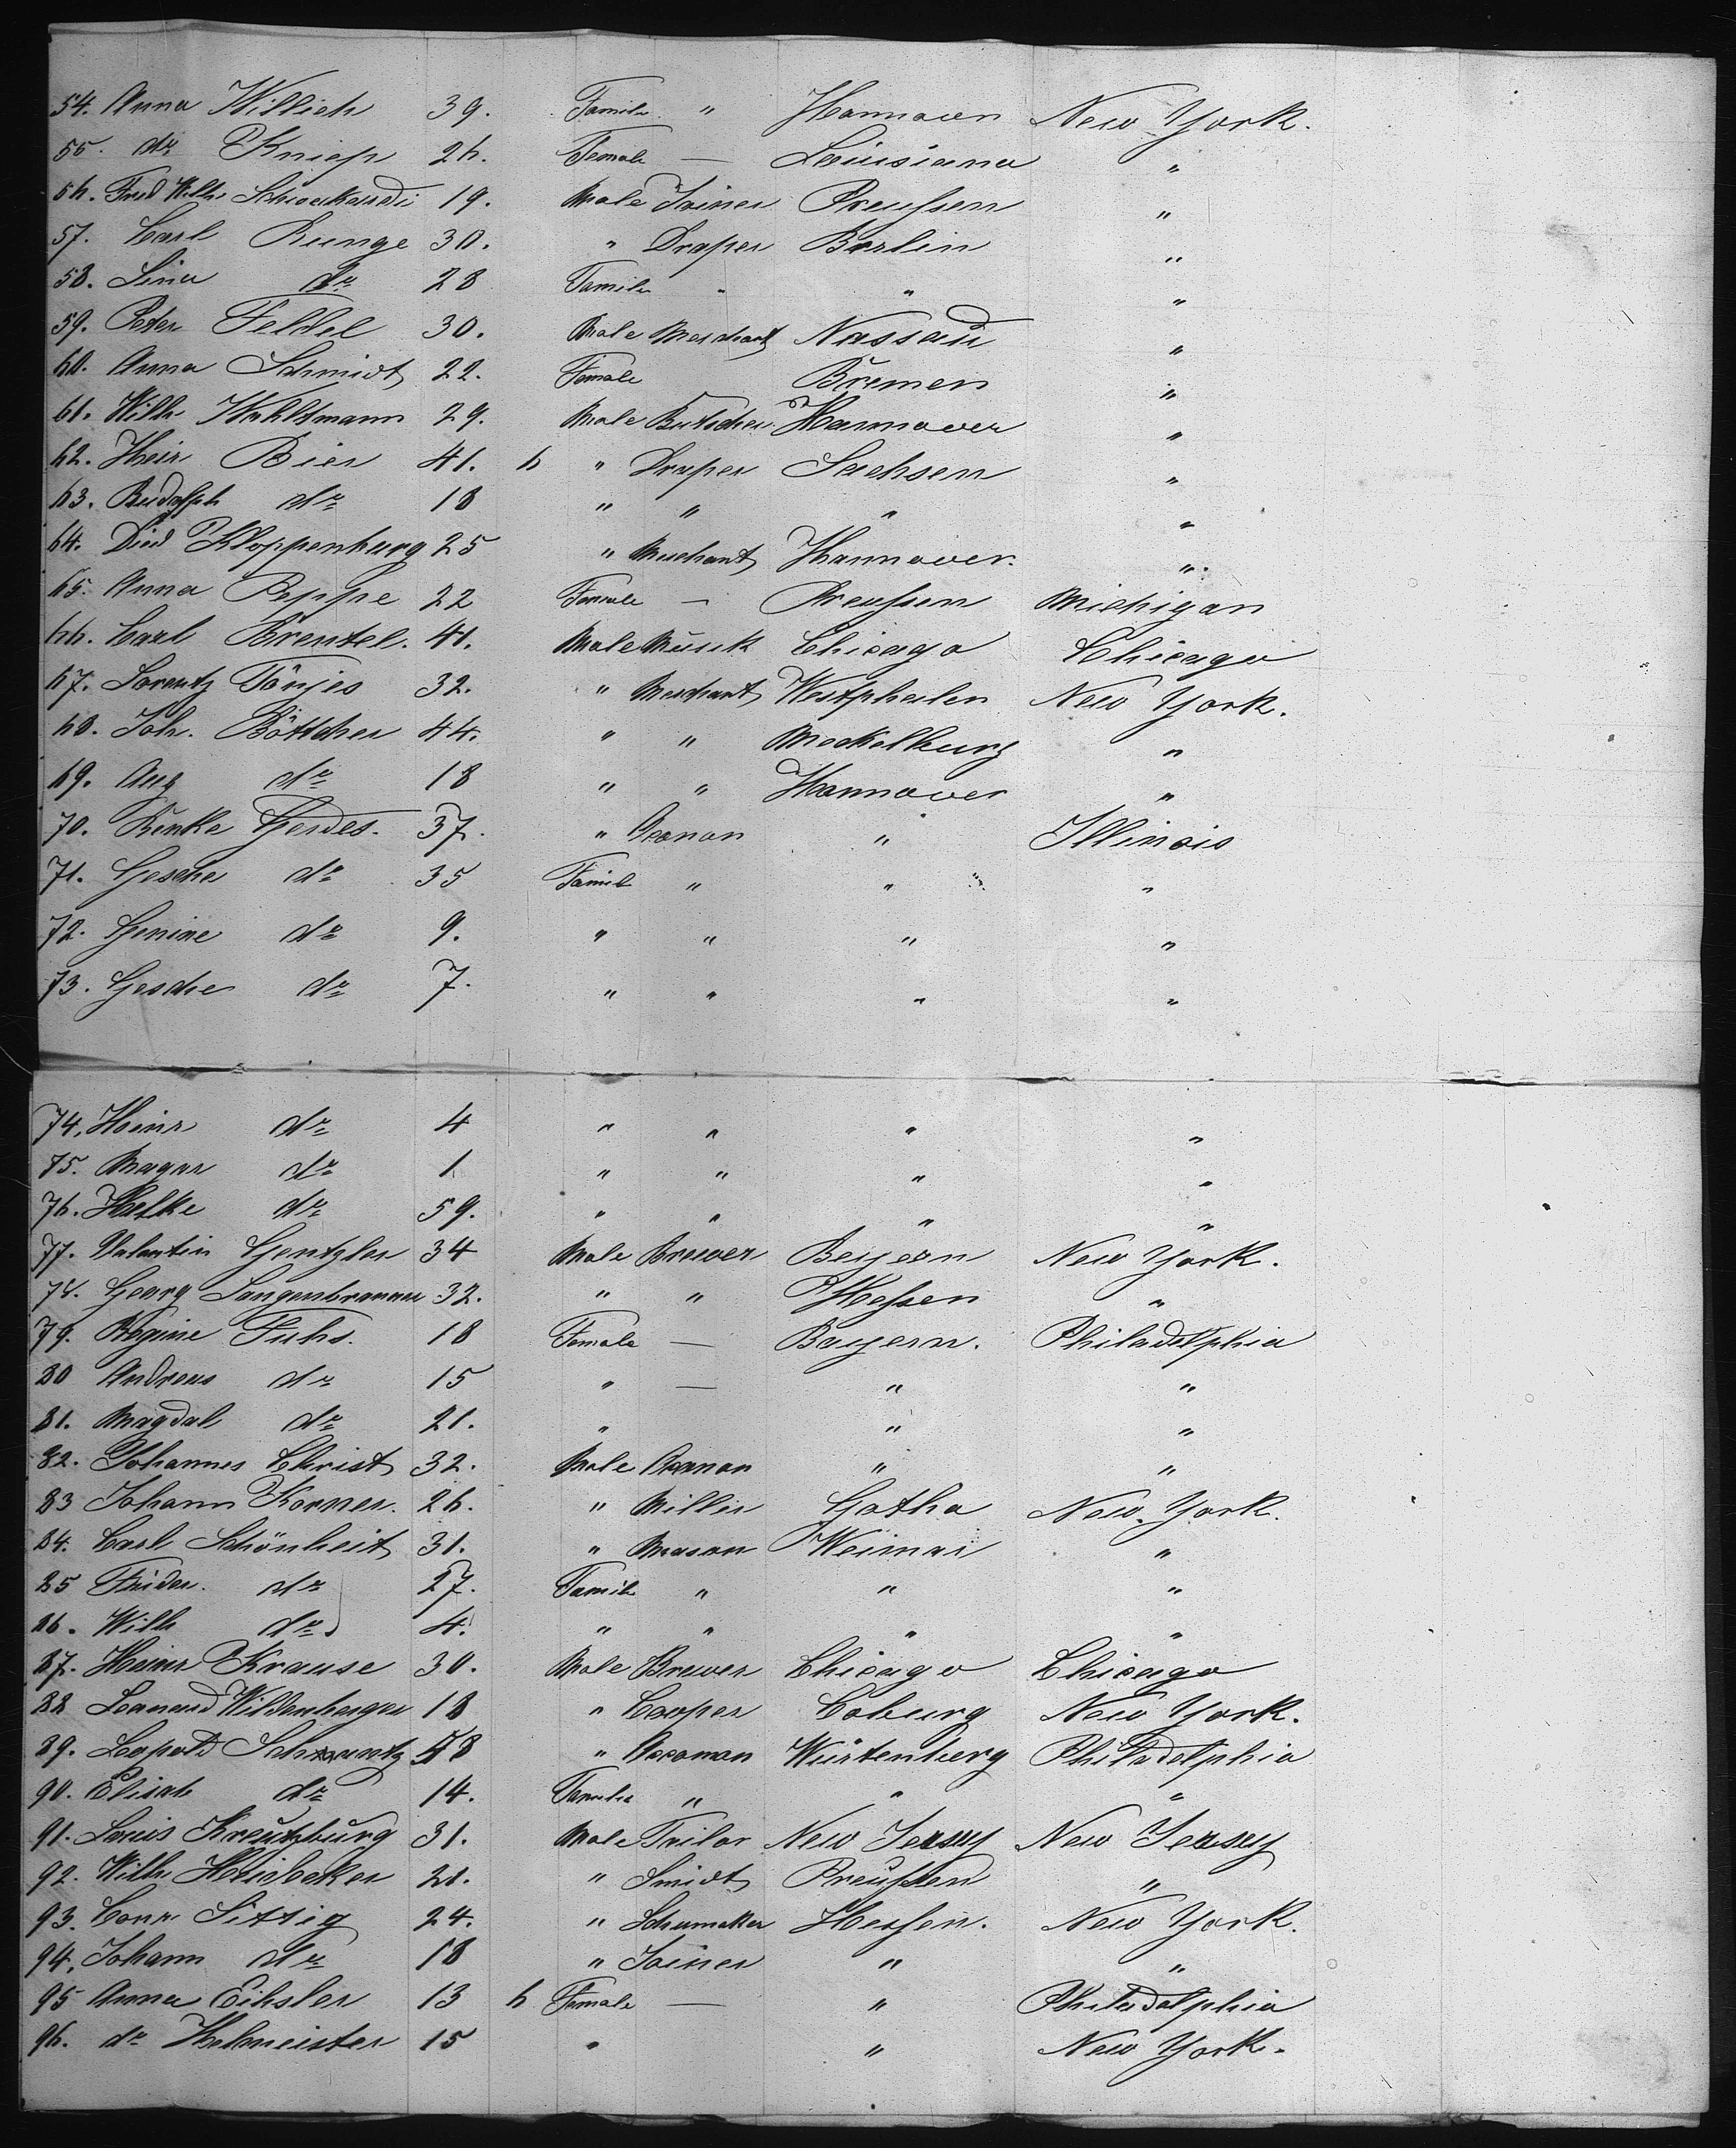 54. Anna Willich 39. Famile " Hannover New York.
55. do Kniep 26. Female — Louisiana "
56. Fried Wilh 19. Male Joiner Preußen "
57. Carl Runge 30. " Draper Berlin "
58. Lina do 28 Famile " " "
59. Peter Feldel 30. Male Merchant Nassau "
60. Anna Schmidt 22. Female Bremen "
61. Wilh Wahltmann 29. Male Butscher Hannover "
62. Heir Bier 41. 6 " Draper Sachsen "
63. Rudolph do 18 " " " "
64. Died Kloppenburg 25 " Merchant Hannover. "
65. Anna Peppe 22 Female — Preußen Michigan
66. Carl Brentel. 41. Male Musik Chicago Chicago
67. Lorentz Tönjes 32. " Merchant Westphalen New York.
68. Joh. Böttcher 44. " " Meckelburg "
69. Aug do 18 " " Hannover "
70. Renke Gerdes. 37. " Oeconon " Illinois
71. Gesche do 35 Famile " " "
72. Genine do 9. " " " "
73. Gesche do 7. " " " "
74. Heinr do 4 " " " "
75. Magar do 1 " " " "
76. do 59. " " " "
77. Valentin Gentzler 34 Male Brewer Beyern New York.
78. Georg 32. " " Heßen "
79. Regine Fuhs. 18 Female — Bayern. Philadelphia
80 Andreas do 15 " — " "
81. Magdal do 21. " " "
82. Johannes Christ 32. Male Oconon " "
83 Johann Korner. 26. " Miller Gotha New York.
84. Carl Schönheit 31. " Mason Weimar "
85 do 27. Famile " " "
86. Wilh do 4. " " " "
87. Heinr Krause 30. Male Brewer Chicago Chicago
88 Leonard Wildenberger 18 " Cooper Coburg New York.
89. Leopold 48 " Oeconon Würtenberg Philadelphia
90. Elisab do 14. Familie " " "
91. Louis Kreutzburg 31. Male Tailor New Jersey New Jersey
92. Wilh Heidbeker 21. " Smidt Preußen "
93. Conr Sittig 24. " Schumaker Heßen. New York.
94. Johann do 18 " Joiner " "
95 Anna Eihsler 13 6 Female — " Philadelphia
96. do Helmeister 15 " " New York.